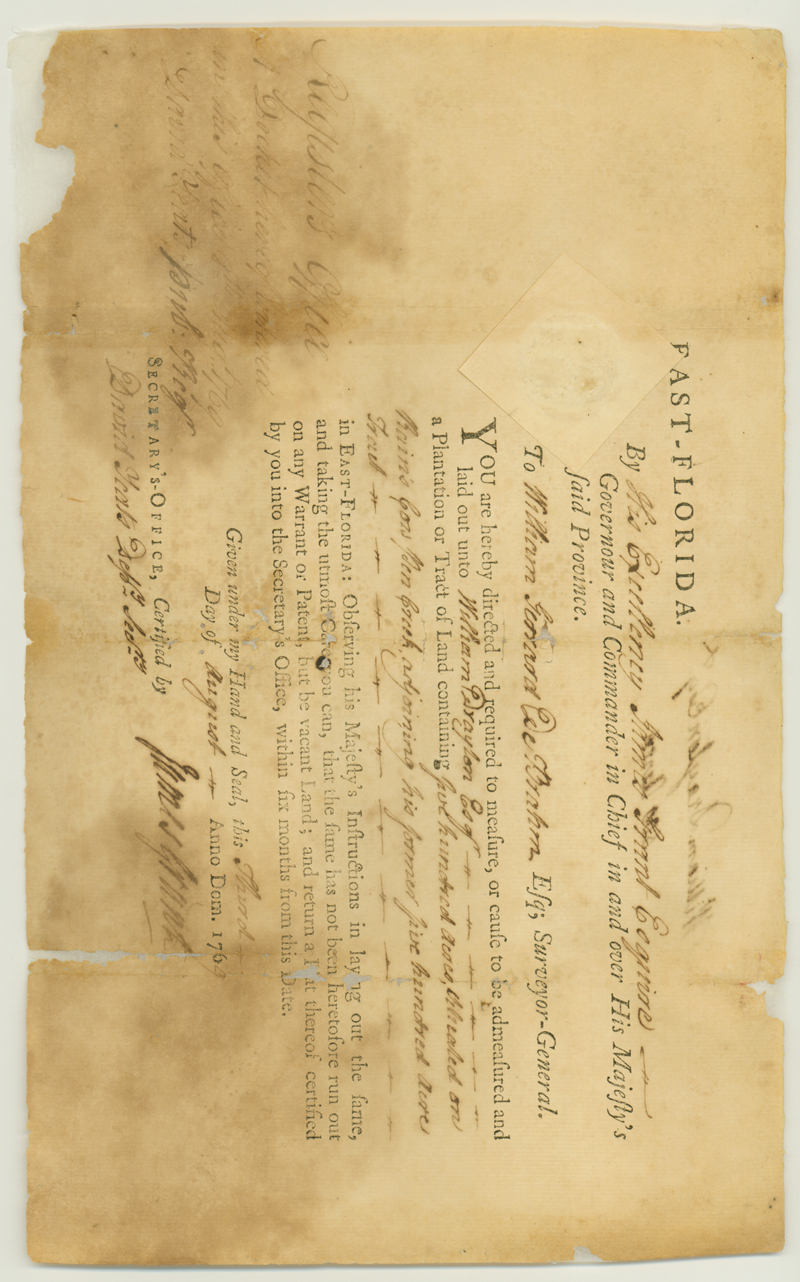 EAST-FLORIDA.
By His Excellency James Grant Esquire
Governour and Commander in Chief in and over His Majeſty's
ſaid Province.
To William Gerard De Brahm, Eſq; Surveyor-General.
YOU are hereby directed and required to meaſure, or cauſe to be admeaſured and
laid out unto William Drayton Esqr
a Plantation or Tract of Land containing five hundred acres, situated on
adjoining his former five hundred acres
Tract
in EAST-FLORIDA: Obſerving his Majeſty's Inſtructions in laying out the ſame,
and taking the utmoſt Care you can, that the ſame has not been heretofore run out
on any Warrant or Patent, but be vacant Land; and return a Plat thereof certified
by you into the Secretary's Office, within ſix months from this Date.
Given under my Hand and Seal, this Third
Day of August Anno Dom. 1769
James Grant
SECRETARY'S-OFFICE, Certified by
David Yeats Depy. Secry
Registers Office
in the
David Yeats